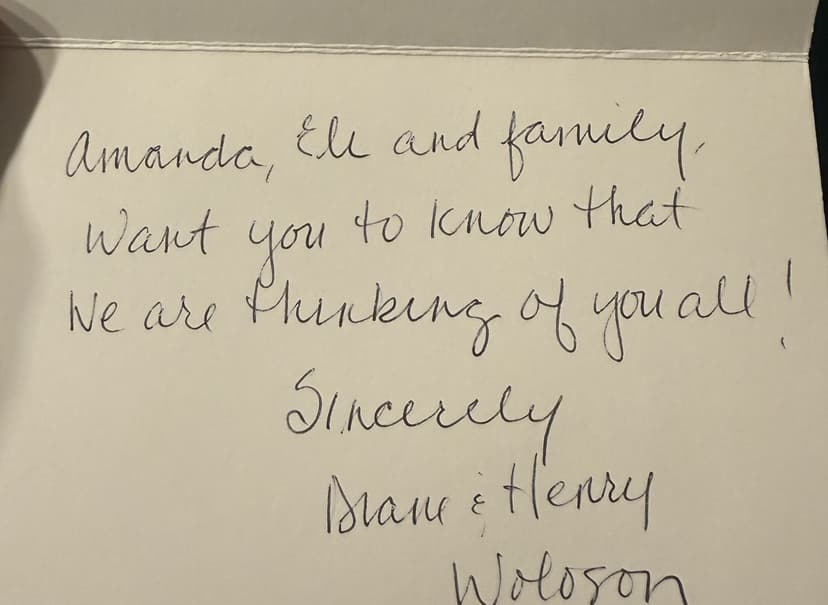 Amanda, Eli and family,
Want you to know that
We are thinking of you all!
Sincerely
Diane & Henry
Woloson